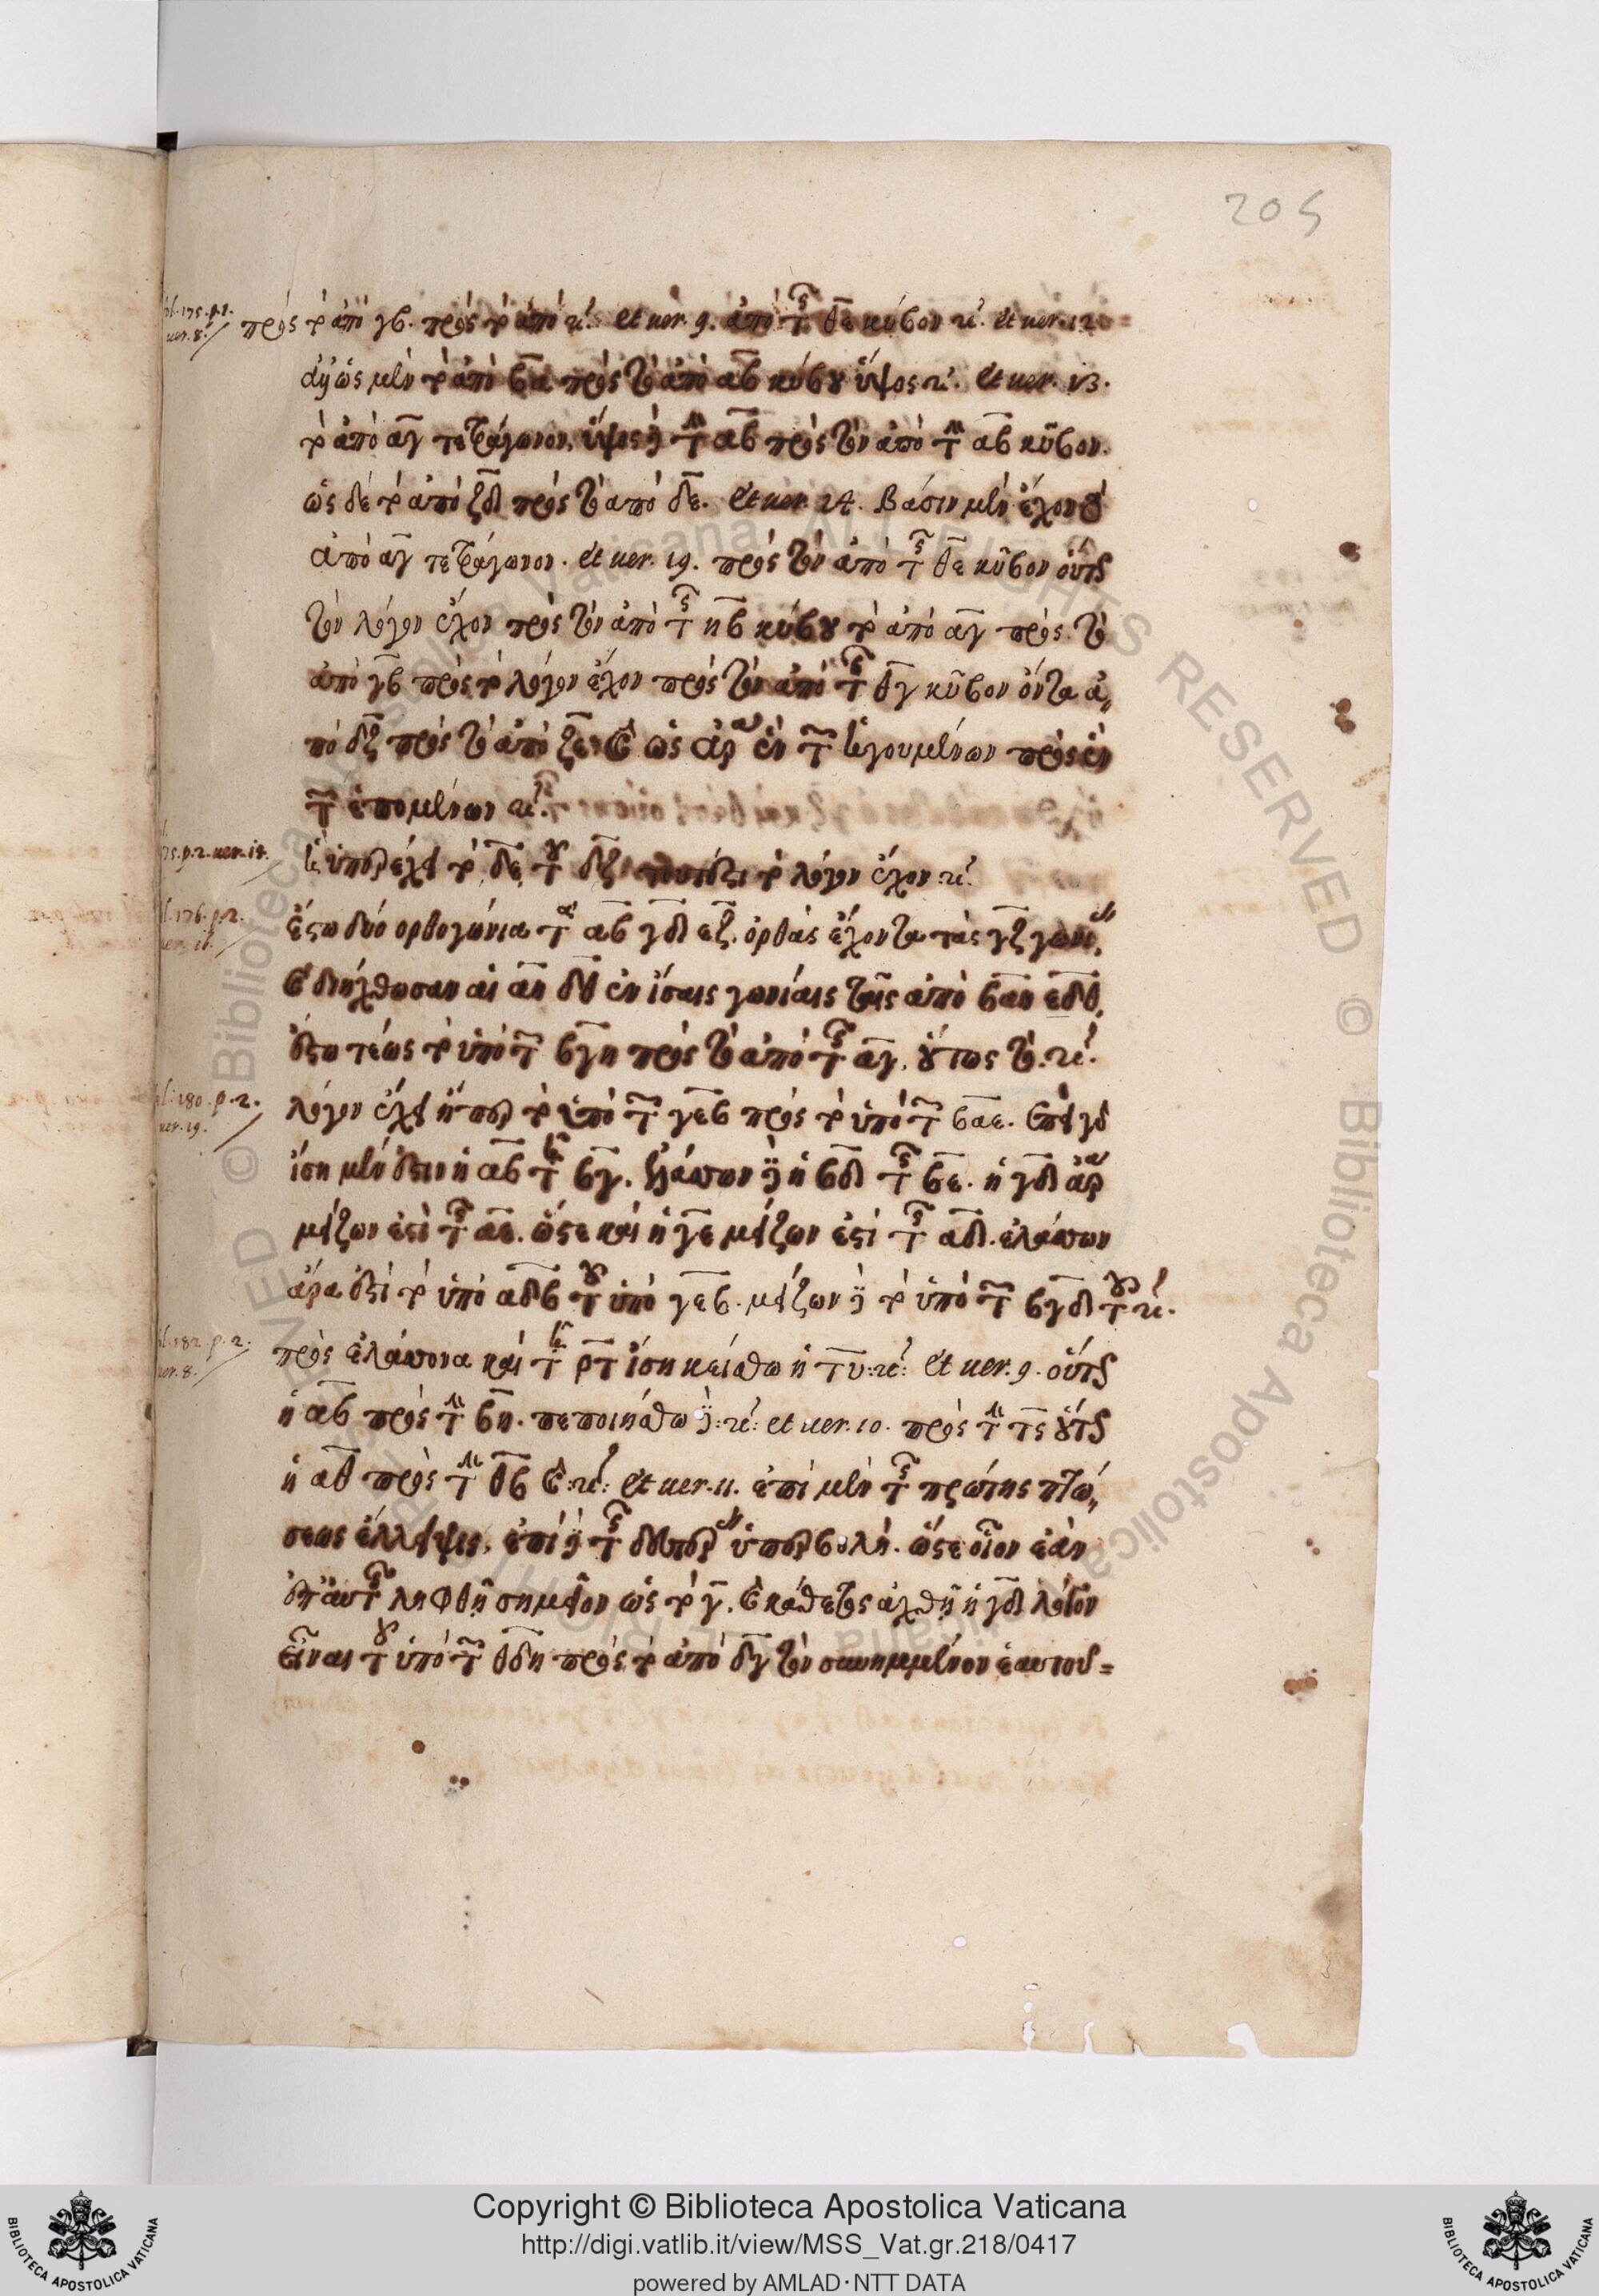 205
πρὸς τὸ ἀπὸ γβ. πρὸς τὸ ἀπὸ κ. et uer. 9. ἀπὸ τῆς θε κύβον κ. et uer. 12
ὡς μὲν τὸ ἀπὸ βα πρὸς τὸ ἀπὸ αβ κύβου ὕψος κ. et uer. 13.
τὸ ἀπὸ αγ τετράγωνον, ὕψος δὲ τὴν αβ πρὸς τὸν ἀπὸ τὴν αβ κύβον.
ὡς δὲ τὸ ἀπὸ ζδ πρὸς τὸ ἀπὸ δε. et uer. 14. βάσιν μὲν ἔχον τὸ
ἀπὸ αγ τετράγωνον. et uer. 19. πρὸς τὸν ἀπὸ τῆς θε κύβον οὕτως
τὸν λόγον ἔχον πρὸς τὸν ἀπὸ τῆς ηβ κύβου τὸ ἀπὸ αγ πρὸς τὸ
ἀπὸ γβ πρὸς τὸ λόγον ἔχον πρὸς τὸν ἀπὸ τῆς θγ κύβον ὄντα ἀ,,
πὸ δζ πρὸς τὸ ἀπὸ ζε. καὶ ὡς ἄρα ἓν τῶν ἡγουμένων πρὸς ἓν
τῶν ἑπομένων κ.
75. p. 2. uer. 14. ᾗ ὑπερέχει τὸ δε τοῦ δζ τουτέστι τὸ λόγον ἔχον κ.
176. p. 2. uer. 16. ἔστω δύο ὀρθογώνια τὰ αβγδεζ. ὀρθὰς ἔχοντα τὰς γζ γωνίας,
καὶ διήχθωσαν αἱ αη δθ ἐν ἴσαις γωνίαις ταῖς ἀπὸ βαη εδθ,
ἔστω τέως τὸ ὑπὸ τῶν βγη πρὸς τὸ ἀπὸ τῆς αγ, οὕτως τὸ. κ.
180. p. 2. uer. 19. λόγον ἔχει ἤπερ τὸ ὑπὸ τῶν γεβ πρὸς τὸ ὑπὸ τῶν βαε. ἐπεὶ γὰρ
ἴση μέν ἐστιν ἡ αβ τῇ βγ. ἐλάττων δὲ ἡ βδ τῆς βε. ἡ γδ ἄρα
μείζων ἐστὶ τῆς αε. ὥστε καὶ ἡ γε μείζων ἐστὶ τῆς αδ. ἐλάττων
ἄρα ἐστὶ τὸ ὑπὸ αδβ τοῦ ὑπὸ γεβ. μείζων δὲ τὸ ὑπὸ τῶν βγδ τοῦ κ.
182. p. 2. uer. 8. πρὸς ἐλάττονα καὶ τῇ ρτ ἴση κείσθω ἡ τυ: κ: et uer. 9. οὕτως
ἡ αβ πρὸς τὴν βη. πεποιήσθω δὲ: κ: et uer. 10. πρὸς τὴν τς οὕτως
ἡ αθ πρὸς τὴν θβ καὶ: κ: et uer. 11. ἐπὶ μὲν τῆς πρώτης πτώ,,
σεως ἐλλείψει, ἐπὶ δὲ τῆς δευτέρας ὑπερβολή. ὥστε οἷον ἐὰν
ἐπ' αὐτῆς ληφθῇ σημεῖον ὡς τὸ γ, καὶ κάθετος ἀχθῇ ἡ γδ λόγον
εἶναι τοῦ ὑπὸ τῶν θδη πρὸς τὸ ἀπὸ δγ τὸν συνημμένον ἑαυτοῦ=
Copyright © Biblioteca Apostolica Vaticana
http://digi.vatlib.it/view/MSS_Vat.gr.218/0417
powered by AMLAD·NTT DATA